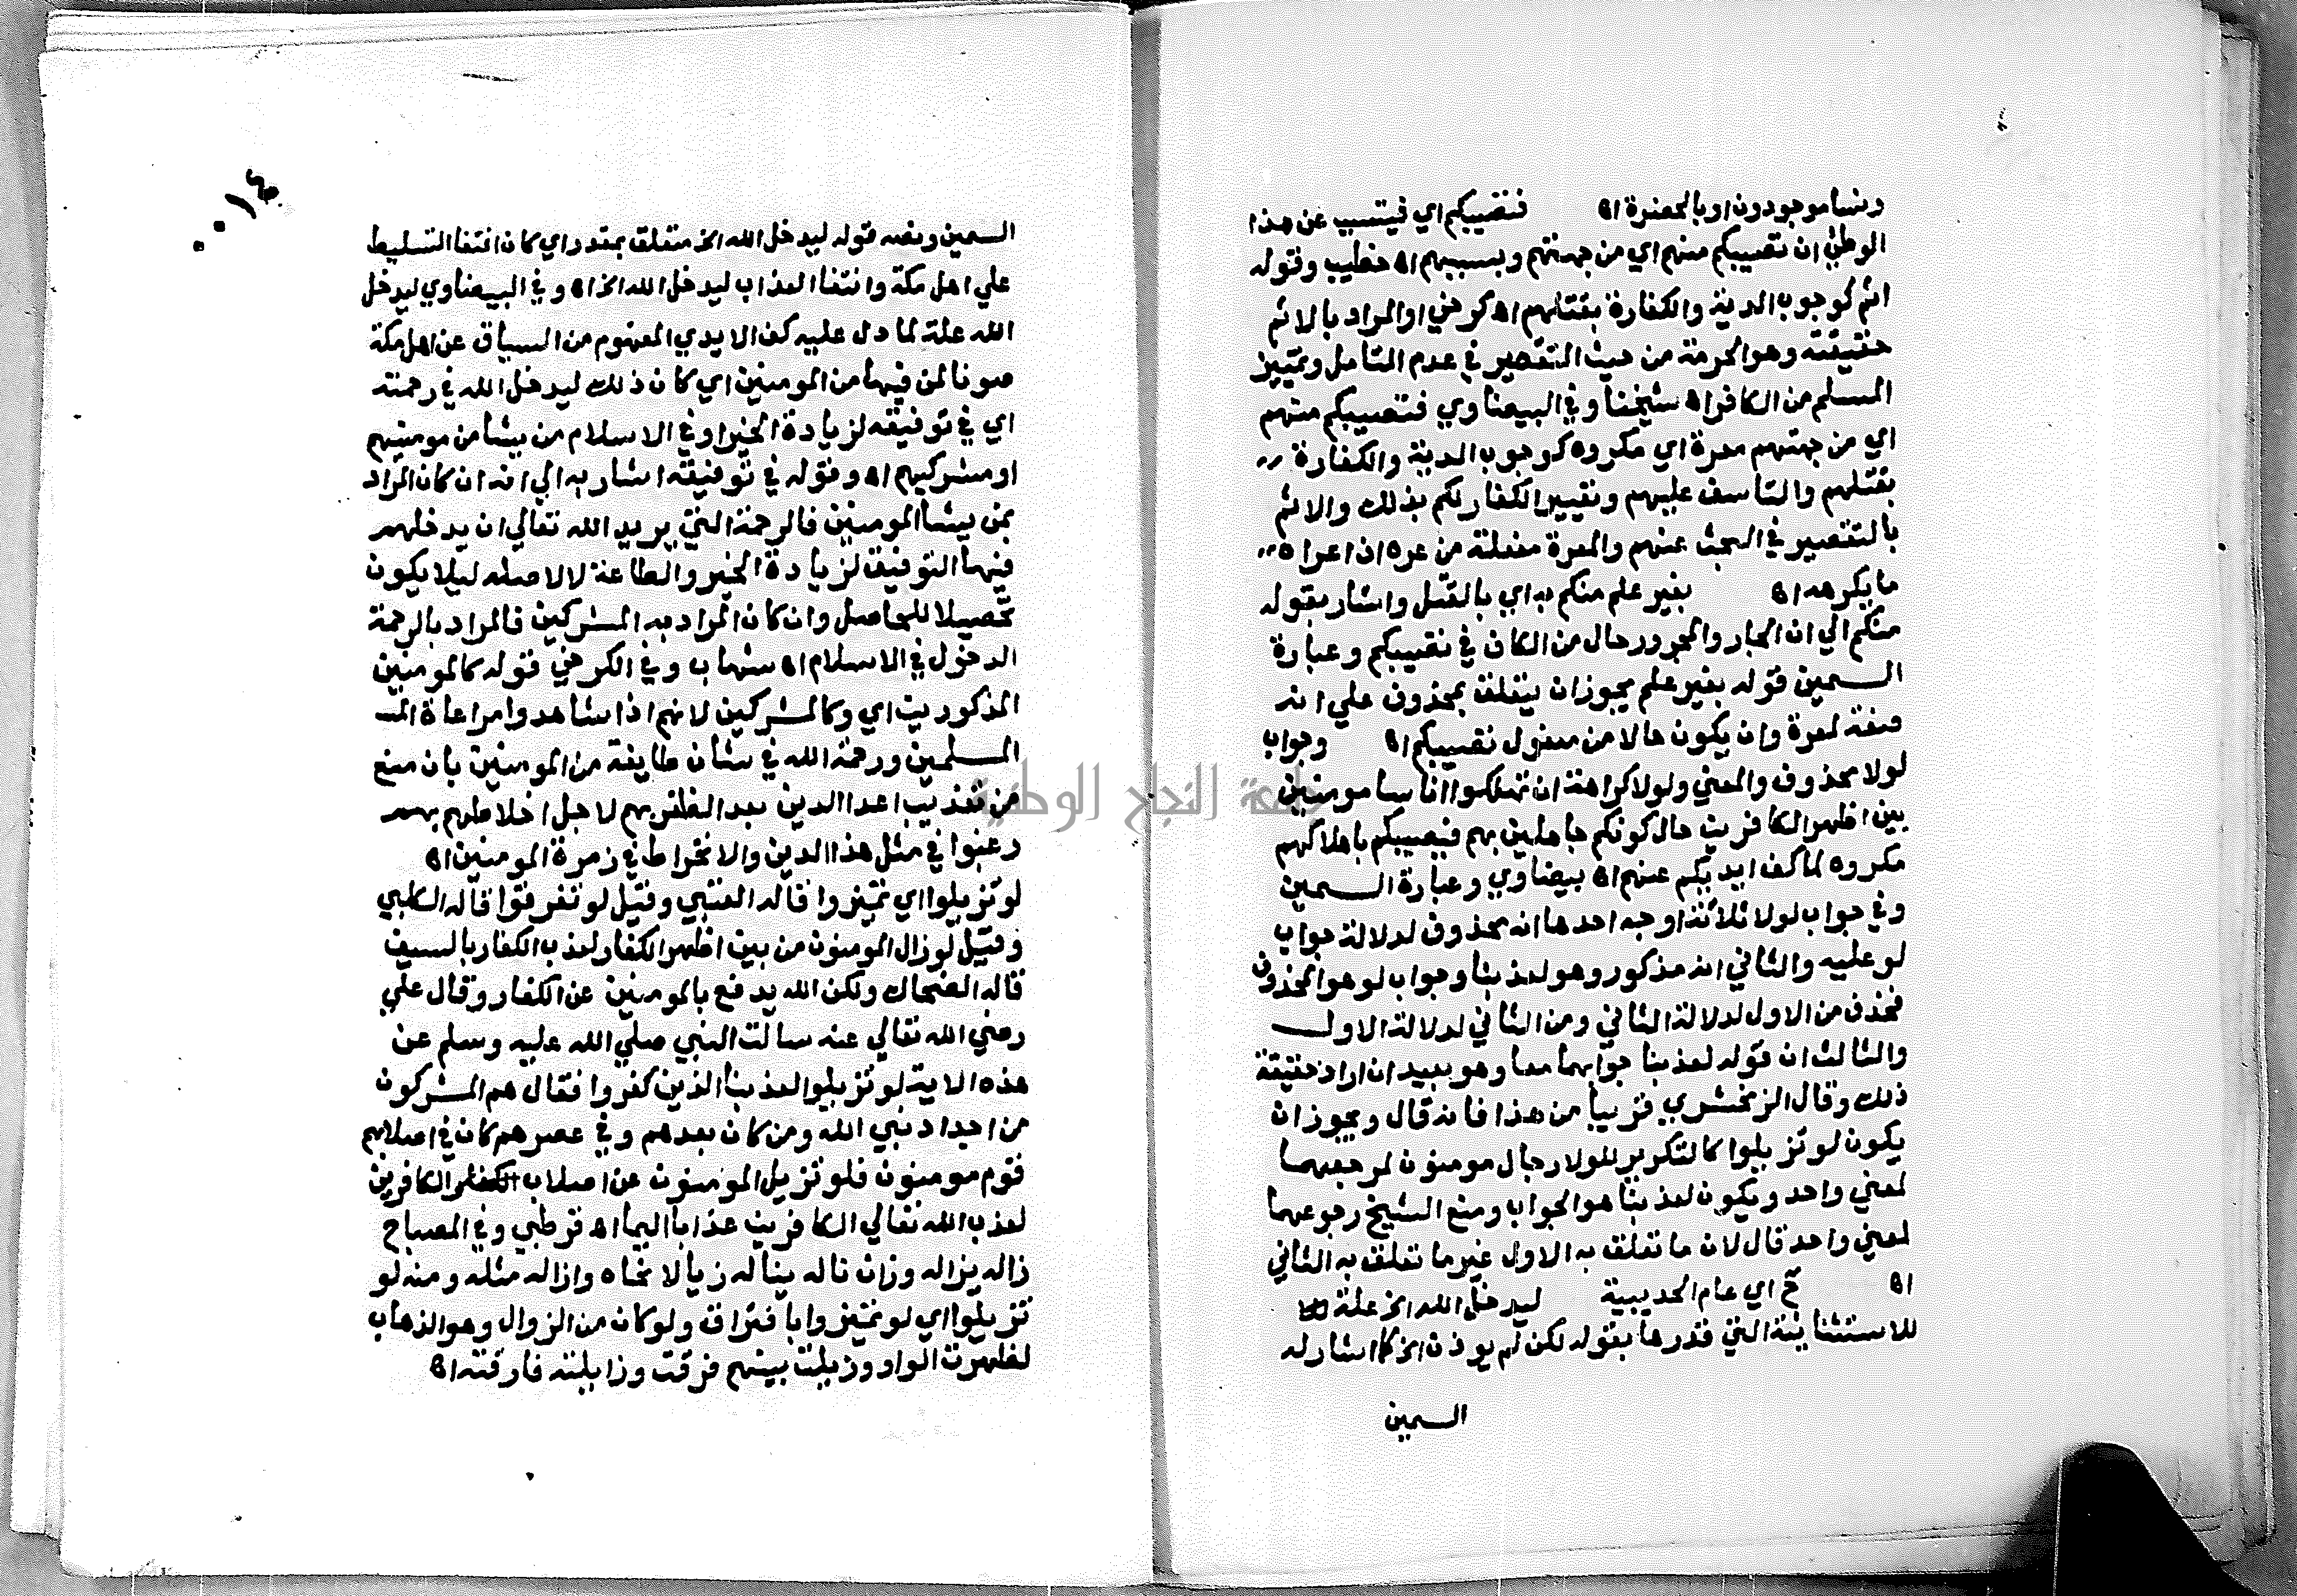 ونسا موجودون او بالحضرة اه فتصيبكم اي فيتسبب عن هذا
الوطئ ان تصيبكم منهم اي من جهتهم وبسببهم اه خطيب وقوله
اثم كوجوب الدية والكفارة بقتلهم اه كرخي او المراد بالاثم
حقيقته وهو الحرمة من حيث التقصير في عدم التامل وتمييز
المسلم من الكافر اه شيخنا وفي البيضاوي فتصيبكم منهم
اي من جهتهم معرة اي مكروه كوجوب الدية والكفارة
بقتلهم والتاسف عليهم وتعيير الكفار لكم بذلك والاثم
بالتقصير في البحث عنهم والمعرة مفعلة من عره اذا عراه
ما يكرهه اه بغير علم منكم به اي بالقتل واشار بقوله
منكم الي ان الجار والمجرور حال من الكاف في تصيبكم وعبارة
السمين قوله بغير علم يجوز ان يتعلق بمحذوف علي انه
صفة لمعرة وان يكون حالا من مفعول تصيبكم اه وجواب
لولا محذوف والمعني ولولا كراهة ان تهلكوا اناسا مومنين
بين اظهر الكافرين حال كونكم جاهلين بهم فيصيبكم باهلاكهم
مكروه لما كف ايديكم عنهم اه بيضاوي وعبارة السمين
وفي جواب لولا ثلاثة اوجه احدها انه محذوف لدلالة جواب
لو عليه والثاني انه مذكور وهو لعذبنا وجواب لو هو المحذوف
فحذف من الاول لدلالة الثاني ومن الثاني لدلالة الاول
والثالث ان قوله لعذبنا جوابهما معا وهو بعيد ان اراد حقيقة
ذلك وقال الزمخشري قريبا من هذا فانه قال ويجوز ان
يكون لو تزيلوا كالتكرير للولا رجال مومنون لمرجعهما
لمعني واحد ويكون لعذبنا هو الجواب ومنع الشيخ رجوعهما
لمعني واحد قال لان ما تعلق به الاول غير ما تعلق به الثاني
اه اي عام الحديبية ليدخل الله الخ علة
للاستثنائية التي قدرها بقوله لكن لم يوذن الخ كما اشار له
السمين
٠٠١٤
السمين ونصه قوله ليدخل الله الخ متعلق بمقدر اي كان انتفا التسليط
علي اهل مكة وانتفا العذاب ليدخل الله الخ اه وفي البيضاوي ليدخل
الله علة لما دل عليه كف الايدي المفهوم من السياق عن اهل مكة
صونا لمن فيها من المومنين اي كان ذلك ليدخل الله في رحمته
اي في توفيقه لزيادة الخير او في الاسلام من يشا من مومنيهم
او مشركيهم اه وقوله في توفيقه اشار به الي انه ان كان المراد
بمن يشا المومنين فالرحمة التي يريد الله تعالي ان يدخلهم
فيها التوفيق لزيادة الخير والطاعة لا لاصله ليلا يكون
تحصيلا للحاصل وان كان المراد به المشركين فالمراد بالرحمة
الدخول في الاسلام اه شهاب وفي الكرخي قوله كالمومنين
المذكورين اي وكالمشركين لانهم اذا شاهدوا مراعاة المسـ
المسلمين ورحمة الله في شان طايفة من المومنين بان منع
من تعذيب اعدا الدين بعد الظفر بهم لاجل اختلاطهم بهم
رغبوا في مثل هذا الدين والانخراط في زمرة المومنين اه
لو تزيلوا اي تميزوا قاله القتبي وقيل لو تفرقوا قاله الكلبي
وقيل لو زال المومنون من بين اظهر الكفار لعذب الكفار بالسيف
قاله الضحاك ولكن الله يدفع بالمومنين عن الكفار وقال علي
رضي الله تعالي عنه سالت النبي صلي الله عليه وسلم عن
هذه الاية لو تزيلوا لعذبنا الذين كفروا فقال هم المشركون
من اجداد نبي الله ومن كان بعدهم وفي عصرهم كان في اصلابهم
قوم مومنون فلو تزيل المومنون عن اصلاب الكافرين
لعذب الله تعالي الكافرين عذابا اليما اه قرطبي وفي المصباح
زاله يزاله وزان ناله يناله زيالا نحاه وازاله مثله ومنه لو
تزيلوا اي لو تميزوا بافتراق ولو كان من الزوال وهو الذهاب
لظهرت الواو وزيلت بينهم فرقت وزايلته فارقته اه
جامعة النجاح الوطنية